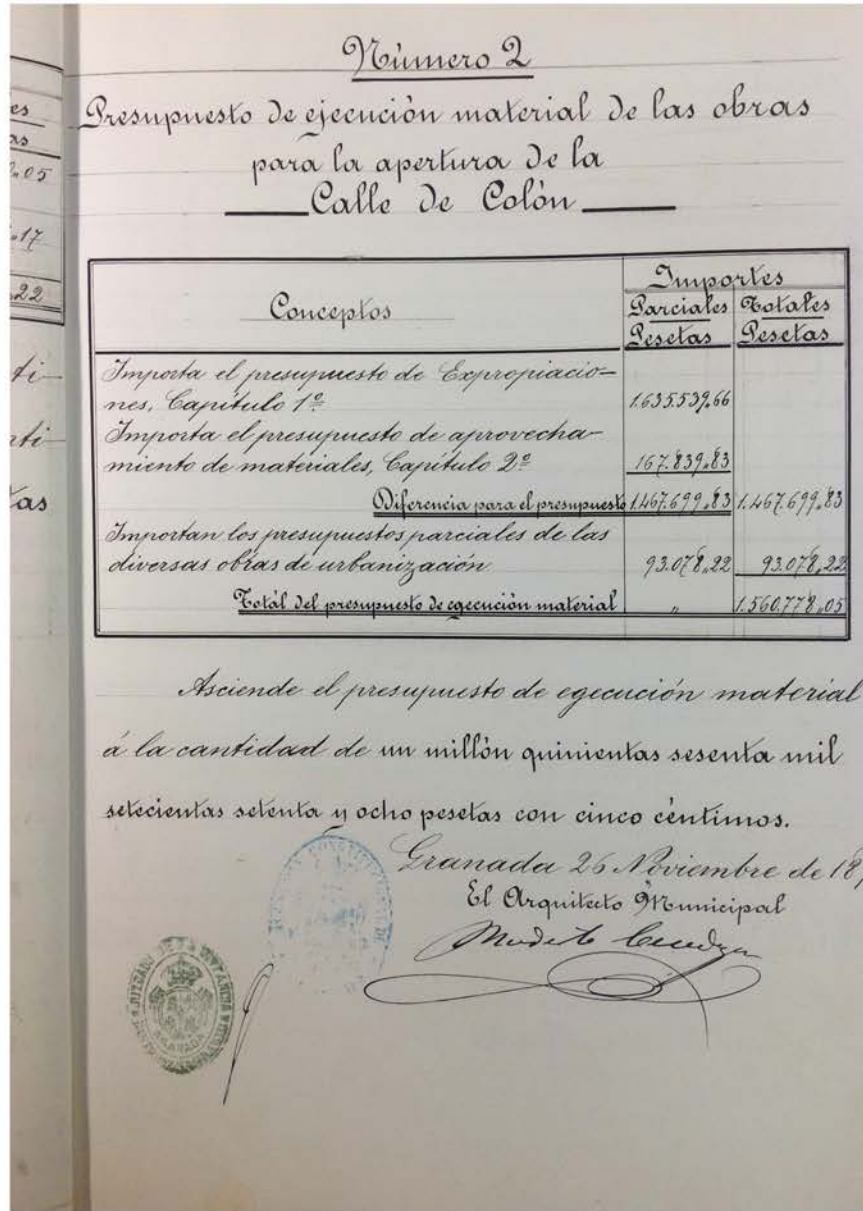 Número 2
Presupuesto de ejecución material de las obras
para la apertura de la
Calle de Colón
Conceptos
Importes
Parciales Totales
Pesetas Pesetas
Importa el presupuesto de Expropiacio-
nes, Capítulo 1º 1.635.539,,66
Importa el presupuesto de aprovecha-
miento de materiales, Capítulo 2º 167.839,,83
Diferencia para el presupuesto 1.467.699,,83 1.467.699,,83
Importan los presupuestos parciales de las
diversas obras de urbanización 93.078,,22 93.078,,22
Total del presupuesto de egecución material ,, 1.560.778,,05
Asciende el presupuesto de egecución material
á la cantidad de un millón quinientas sesenta mil
setecientas setenta y ocho pesetas con cinco céntimos.
Granada 26 Noviembre de 18
El Arquitecto Municipal
Modesto Cendoya
GRANADA
es
as
,,05
,,17
,,22
ti-
nti-
tas